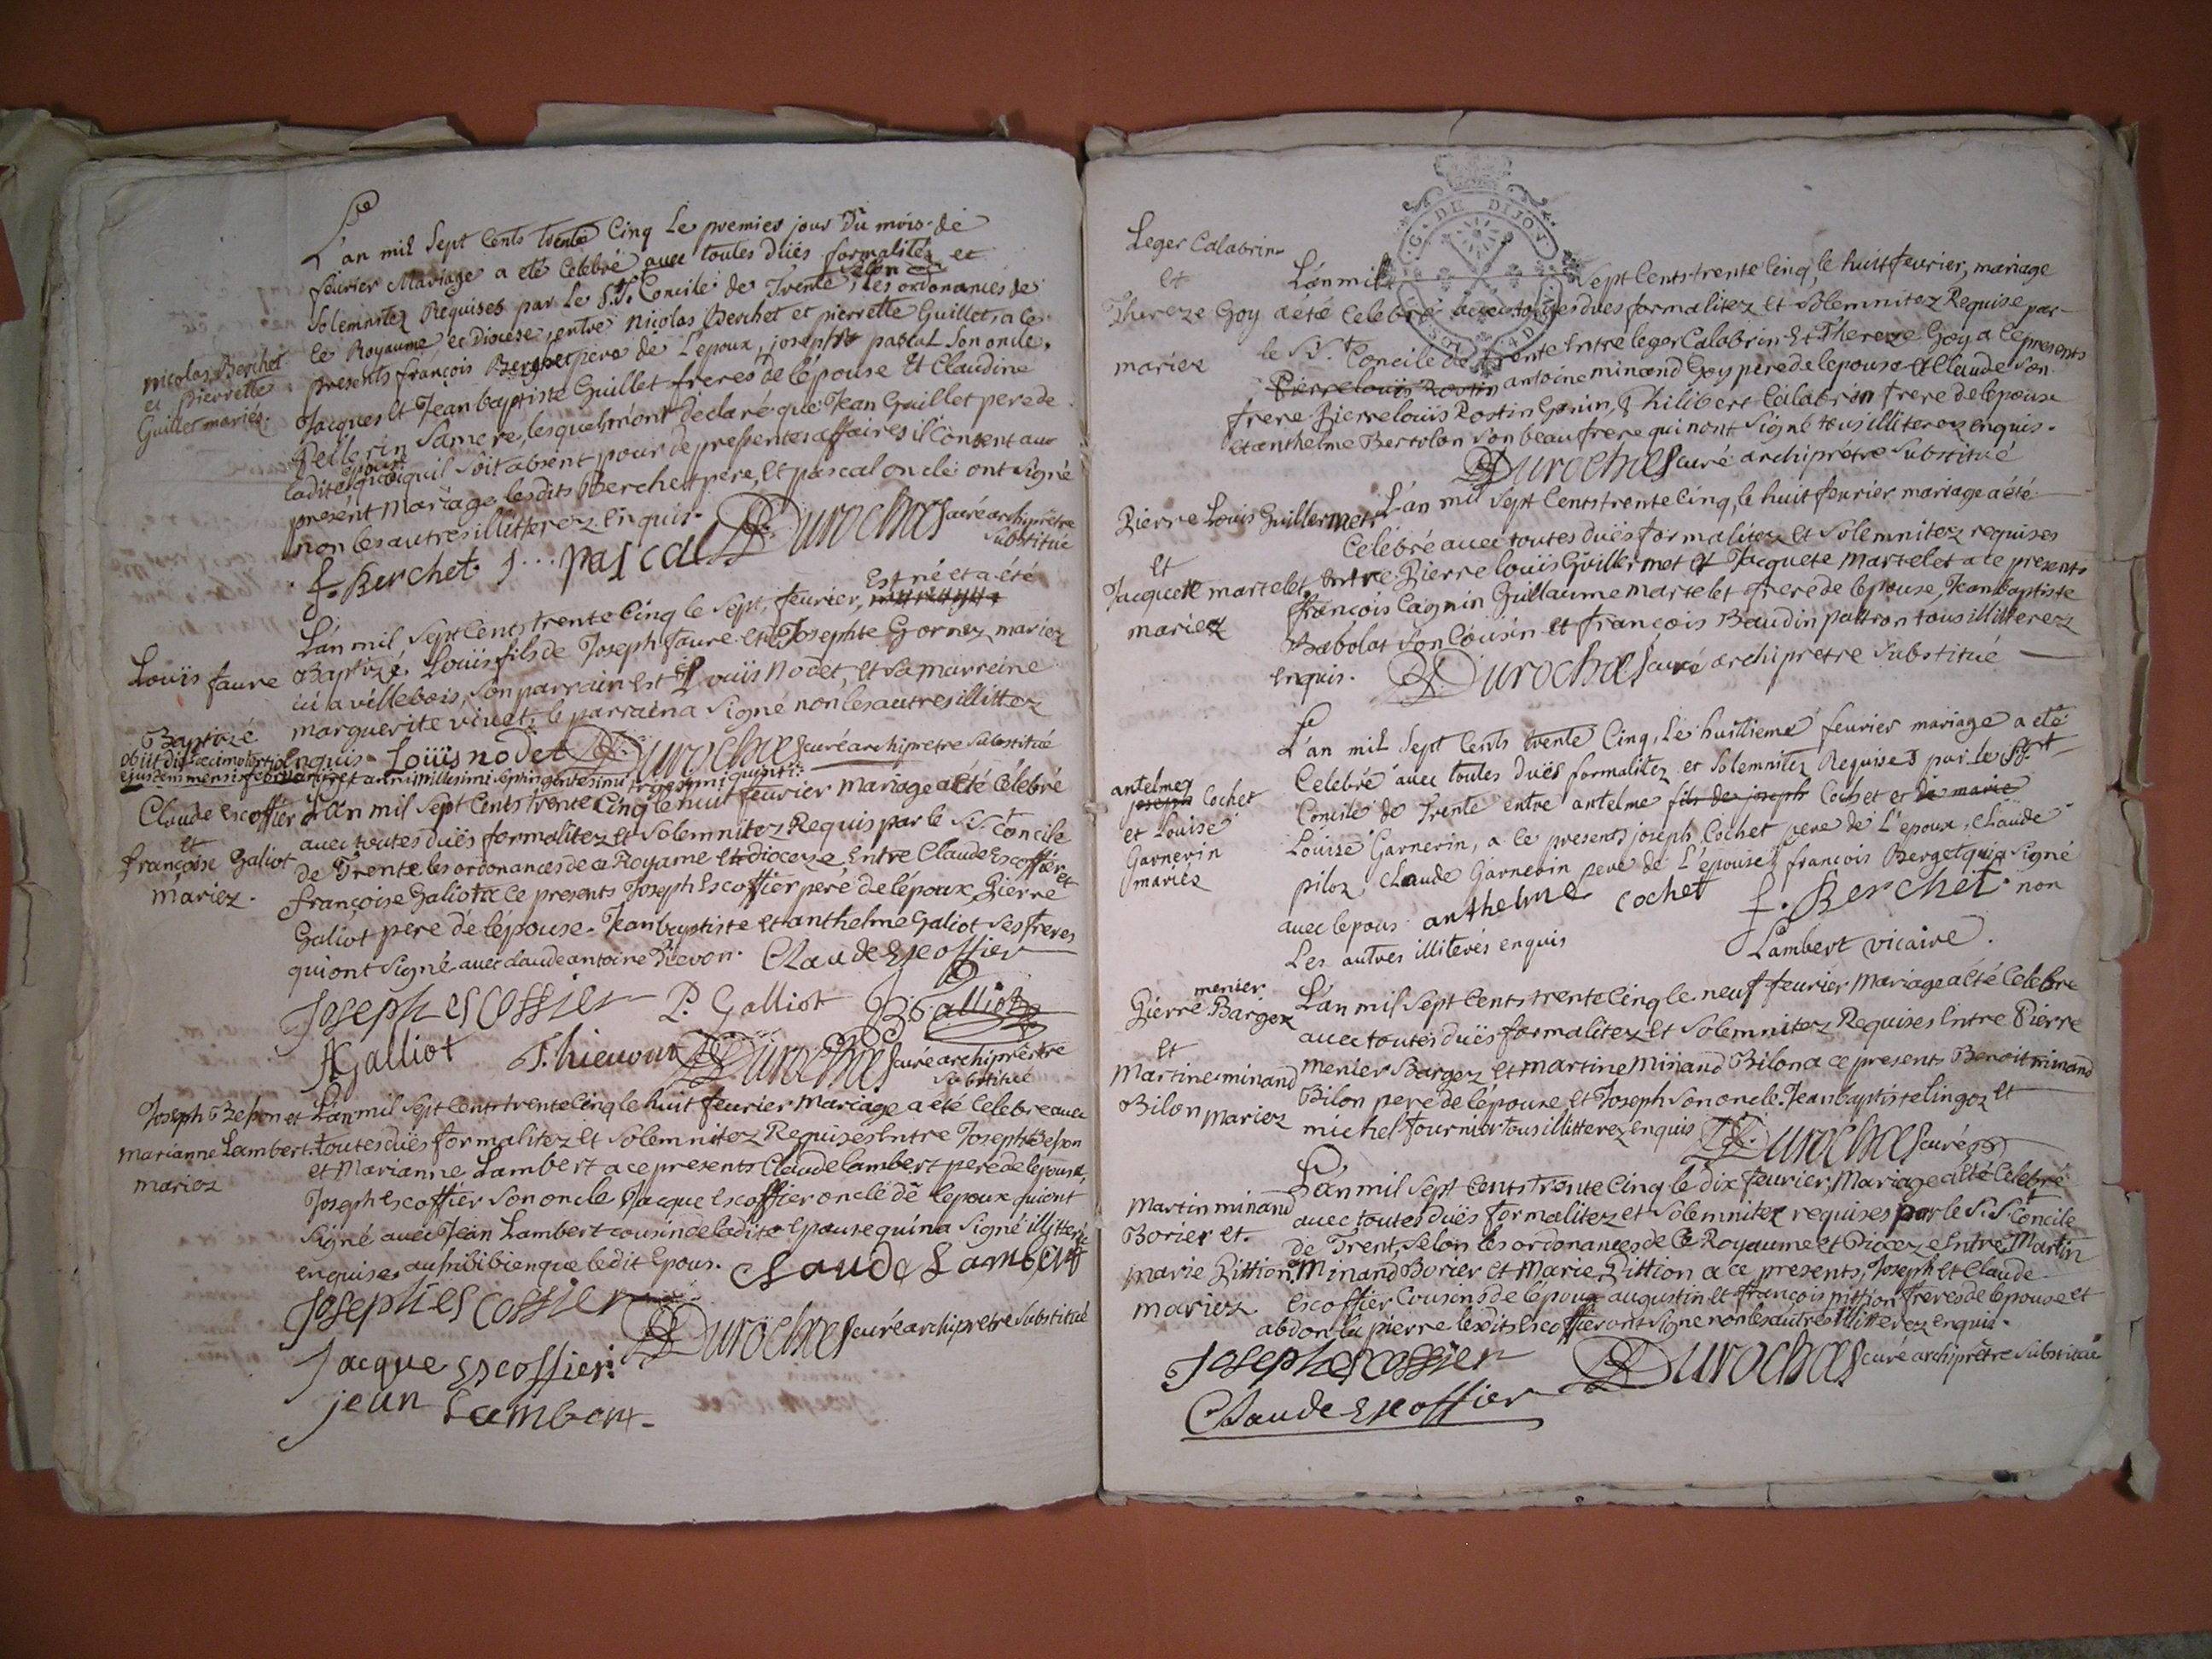 L'an mil Sept Cents trente Cinq Le premier jour Du mois de
février Mariage a eté Celebré avec toutes düës formalités et
Solemnitez Requises par Le S.t Concile de Trente, Selon Les ordonances de
ce Royaume et Diocese, entre Nicolas Berchet et pierrette Guillet, a ce
presents françois Berchet pere de L'epoux, joseph pascal Son oncle,
Nicolas Berchet
et pierrette
Guillet mariés.
Jacques Et Jean baptiste Guillet freres de lépouse Et Claudine
Pellerin Sa mere, lesquels m'ont Declaré que Jean Guillet pere de
ladite épouse quoiquil Soit absent pour de pressentes affaires il Consent au
présent Mariage lesdits Berchet pere, Et pascal oncle ont Signé
non les autres illitterez Enquis.
f. Berchet. J... pascal Duroches curé archiprêtre
Substitué
Louïs faure
Baptizé
L'an mil Sept Cents trente Cinq le Sept, feurier, Est né et a été mariage
Baptizé Louïs fils de Joseph faure et de Josephte Gornez mariez
ici a villebois, Son parrain est Louïs Nodet, et Sa marreine
marguerite vivet, le parrain a Signé non les autres illittez
Enquis. Louïs nodet Duroches curé archiprêtre Substitué
obiit die decimo tertio
ejusdem mensis februarii et anni millesimi Septingentesimi trigesimi quinti
Claude Escoffier
et
françoise Galiot
mariez.
L'an mil Sept Cents trente Cinq le huit feurier Mariage a Eté Célebré
avec toutes duës formalitez et Solemnitez Requis par le S.S. Concile
de Trente les ordonances de ce Royame et dioceze Entre Claude Escoffier et
françoise Galiot a Ce presents Joseph Escoffier peré de lépoux Pierre
Galiot pere de lépouse. Jean baptiste et anthelme Galiot Ses freres
qui ont Signé avec claude antoine Tievon. Claude Escoffier
Joseph esCoffier P. Galliot B Galliot
A Galliot Thievon Duroches curé archiprêtre
Substitué
Joseph Beßon et
marianne Lambert
mariez
L'an mil Sept Cents trente Cinq le huit feurier Mariage a eté Celebre avec
toutes duës formalitez et Solemnitez Requises Entre Joseph Beßon
et Marianne Lambert a ce presents Claude lambert pere de lepouse,
Joseph Escoffier Son oncle Jacque Escoffier oncle de lepoux qui ont
Signé avec Jean Lambert cousin de ladite Epouse qui na Signé illitteré
enquises aussi bien que ledit Epous. Claude Lambert
Joseph esCoffier Duroches curé archiprêtre Substitué
Jacque Escoffier.
jean Lambert.
G. DE DIJON
Leger Calabrin
et
Thereze Goy
mariez
L'an mil Sept Cents trente Cinq, le huit feurier, mariage
a été Celebré avec toutes dues formalitez et Solemnitez Requise par
le S.S.t Concile de Trente Entre leger Calabrin Et Thereze Goy a Ce presents
Pierre louïs Rostin antoine minand Goy pere de lepouse & Claude Son
frere Pierre louïs Rostin Gonin, Philibert Calabrin frere de lepoux
et anthelme Bertolon Son beau frere qui nont Signé tous illiterez enquis.
Duroches curé archiprêtre Substitué
Pierre Louis Guillermet
et
Jacquete martelet
mariez
L'an mil Sept Cents trente Cinq, le huit feurier mariage a été
Celebré avec toutes duës formalitez et Solemnitez requises
Entre Pierre louïs Guillermet et Jacquete Martelet a ce presents
françois Cagnin Guillaume martelet frere de lepouse, Jean Baptiste
Babolat Son Cousin et françois Baudin patron tous illitterez
enquis. Duroches curé archiprêtre Substitué
antelme joseph Cochet
et Louise
Garnerin
mariés
L'an mil Sept Cents trente Cinq, Le huitieme feurier mariage a eté
Celebré avec toutes duës formalitez et Solemnitez Requises par Le S.t
Concile de Trente entre antelme fils de joseph Cochet et de marie
Louise Garnerin, a ce presents joseph Cochet pere de L'epoux, Claude
piloz, Claude Garnerin pere de L'épouse, françois Berget qui a Signé
avec lepous anthelme cochet f. Berchet. non
Les autres illiterés enquis Lambert vicaire.
Pierre menier Bargez
et
Martine minand
Bilon mariez
L'an mil Sept Cents trente Cinq le neuf feurier Mariage a Eté Celebre
avec toutes duës formalitez et Solemnitez Requises Entre Pierre
menier Bargez et martine Minand Bilon a ce presents Benoit minand
Bilon pere de lépouse et Joseph Son oncle. Jean baptiste lingoz et
michel fournier tous illitterez enquis Duroches curé
Martin minand
Borier et
marie Pittion
mariez
L'an mil Sept Cents trente Cinq le dix feurier, Mariage a Eté Celebré
avec toutes duës formalitez et Solemnitez requises par le S.S Concile
de Trent, Selon les ordonances de Ce Royaume et Dioceze Entre Martin
Minand Borier et Marie Pittion a ce presents, Joseph et Claude
Escoffier Cousins de lépoux augustin et françois pittion freres de lepouse et
abdon la pierre lesdits Escoffier ont Signe non les autres illitterez enquis.
Joseph esCoffier Duroches curé archiprêtre Substitué
Claude Escoffier